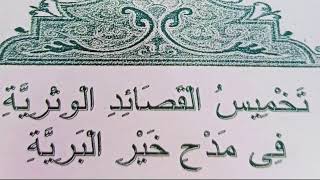 تَخْمِيسُ الْقَصَائِدِ الْوِتْرِيَّةِ
فِى مَدْحِ خَيْرِ الْبَرِيَّةِ